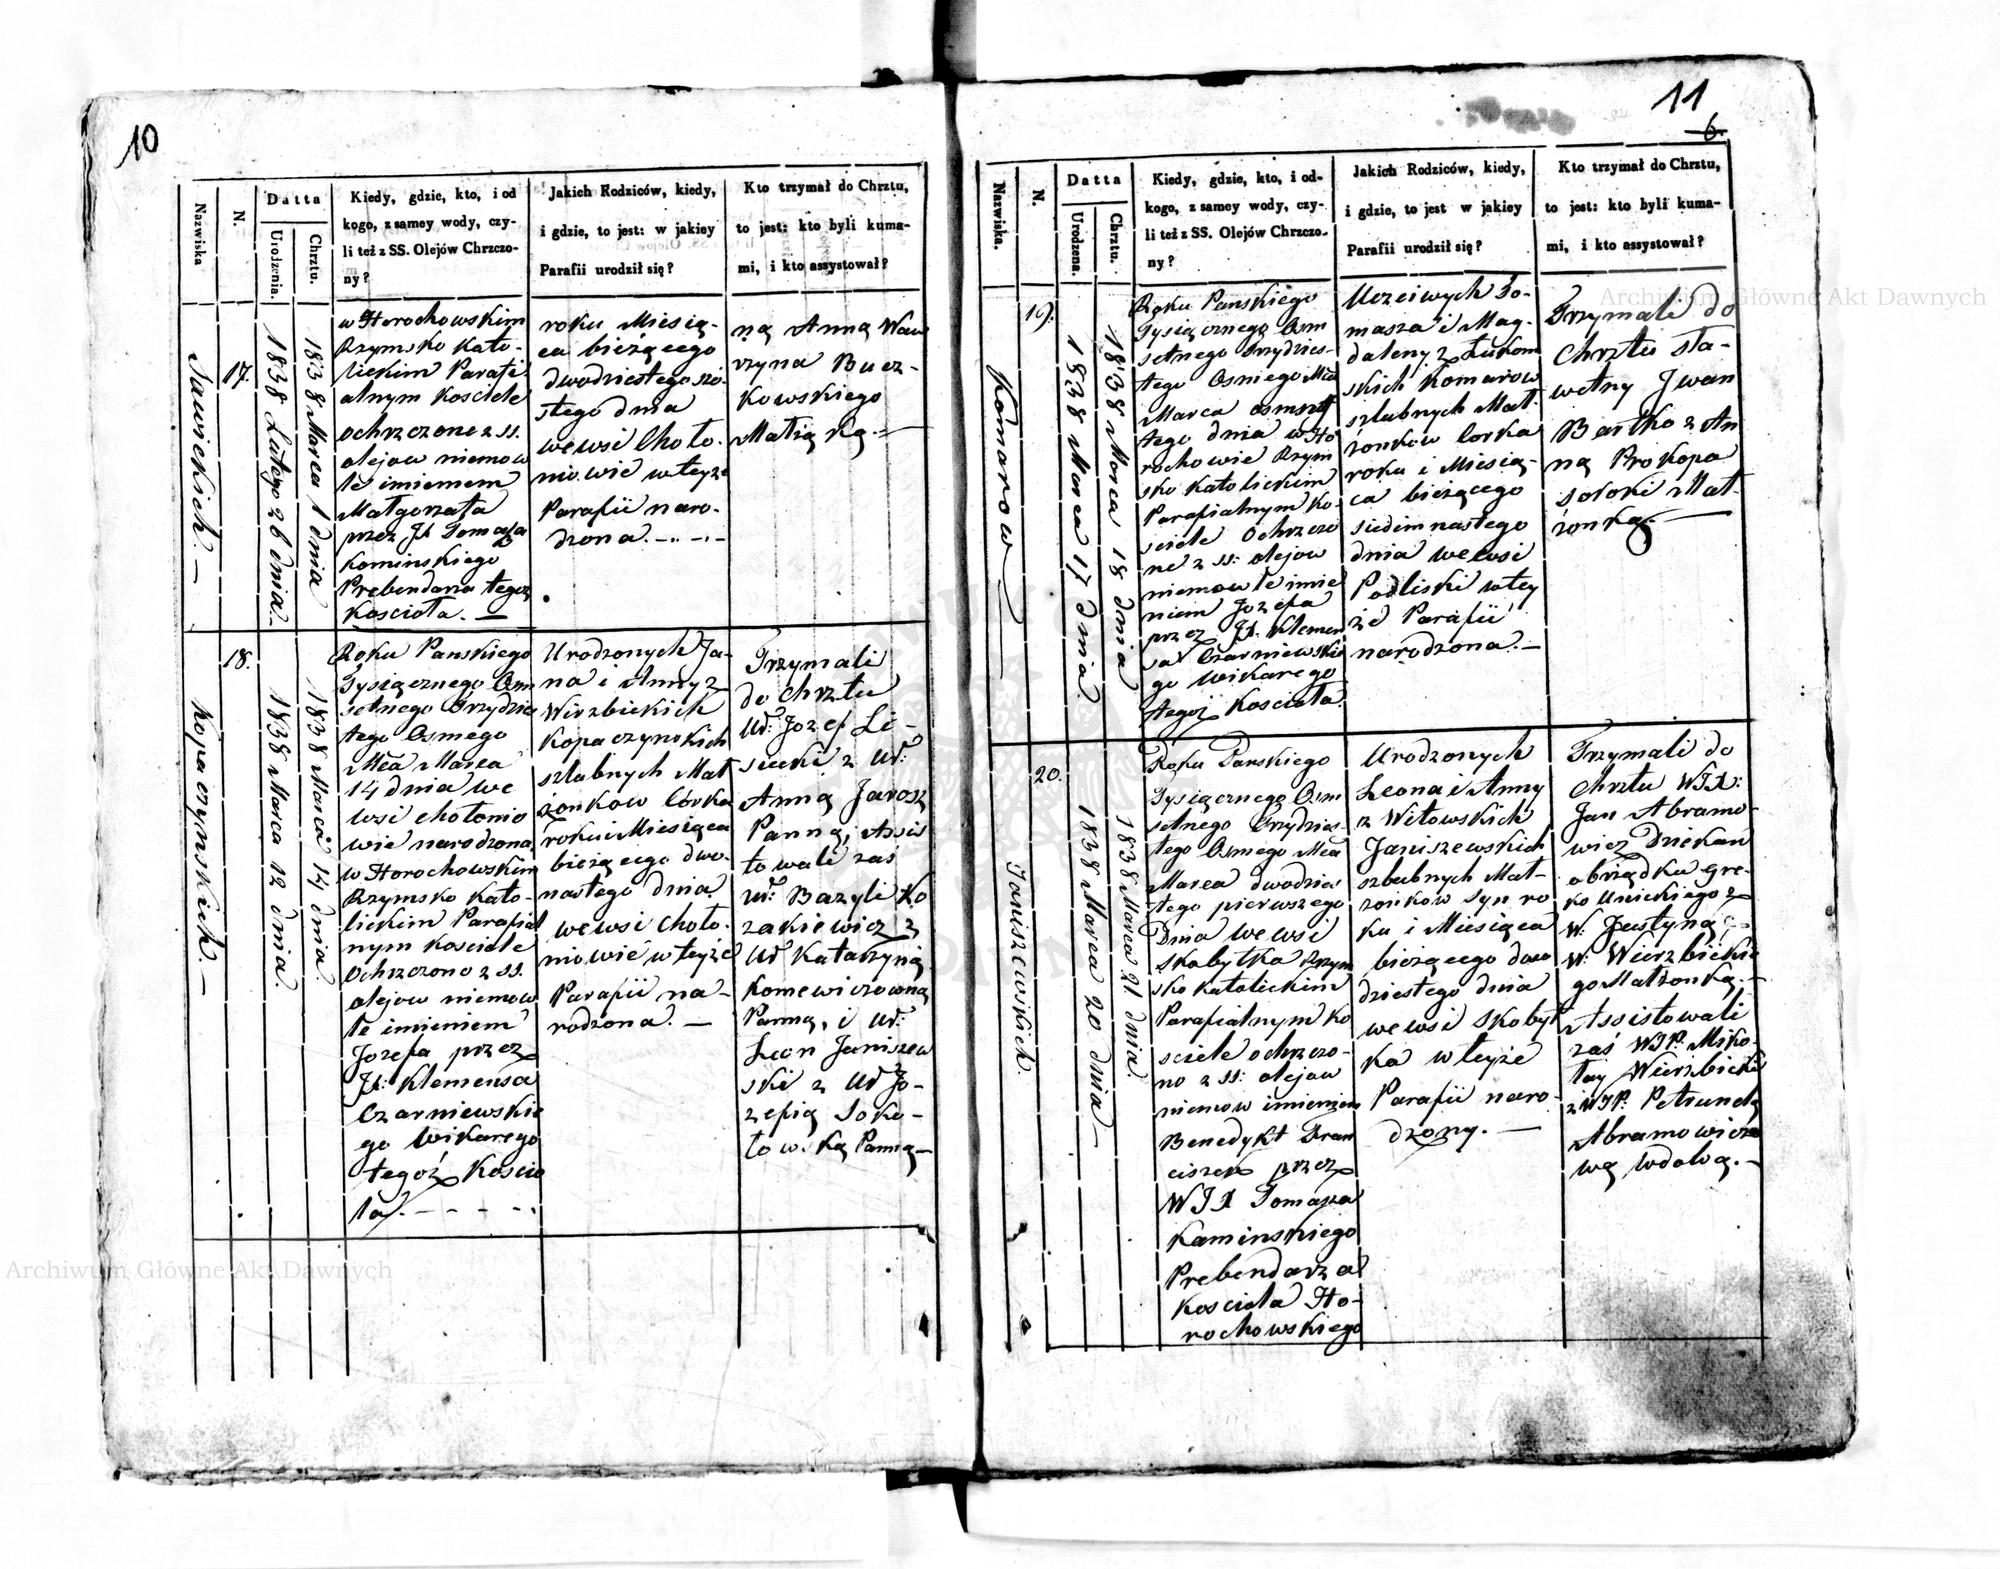 10
Nazwiska
N.
Datta
Urodzenia.
Chrztu.
Kiedy, gdzie, kto, i od
kogo, z samey wody, czy-
li też z SS. Olejów Chrzczo-
ny?
Jakich Rodziców, kiedy,
i gdzie, to jest: w jakiey
Parafii urodził się?
Kto trzymał do Chrztu,
to jest: kto byli kuma-
mi, i kto assystował?
Sawickich.—
17.
1838 Lutego 26 dnia.
1838 Marca 1 dnia
w Horochowskim
Rzymsko Kato-
lickim Parafi
alnym Kosciele
ochrzczone z ss.
olejow niemow
le imieniem
Małgorzata
przez JX Tomasza
Kominskiego
Prebendarza tegoż
Koscioła.—
roku Miesią-
ca bieżącego
dwodziestego szó-
stego dnia
we wsi Choło-
niowie w teyże
Parafii naro-
dzona.—
ną Anną Waw
rzyna Bucz-
kowskiego
Małżąką.—
Kopaczynskich.—
18.
1838 Marca 12 dnia.
1838 Marca 14 dnia.
Roku Panskiego
Tysiącznego Osm
setnego Trzydzies
tego Osmego
Mca Marca
14 dnia we
wsi Chołonio
wie narodzona
w Horochowskim
Rzymsko Kato-
lickim Parafial
nym Kosciele
Ochrzczono z ss.
olejow niemow
le imieniem
Jozefa przez
JX: Klemensa
Czarniewskie
go Wikarego
tegoż Koscio
ła.— - - -
Urodzonych Ja-
na i Anny z
Wirzbickich
Kopaczynskich
szlubnych Mał
żonkow Córka
roku i Miesiąca
bieżącego dwo-
nastego dnia
we wsi Choło-
niowie w teyże
Parafii na-
rodzona.—
Trzymali
do Chrztu
Ur. Jozef Li-
siecki z Ur.
Anną Jarosz
Panną, Assis
towali zaś
Ur. Bazyli Ko
zakiewicz z
Ur Katarzyną
Komewiczowną
Panną, i Ur.
Leon Janiszew
ski z Ur Jo-
zefią Soko-
łowską Panną—
11
6.
Nazwiska.
N.
Datta
Urodzena.
Chrztu.
Kiedy, gdzie, kto, i od-
kogo, z samey wody, czy-
li też z SS. Olejów Chrzczo-
ny?
Jakich Rodziców, kiedy,
i gdzie, to jest w jakiey
Parafii urodził się?
Kto trzymał do Chrztu,
to jest: kto byli kuma-
mi, i kto assystował?
Komarow—
19.
1838 Marca 17 dnia.
1838 Marca 18 dnia
Roku Panskiego
Tysiącznego Osm
setnego Trzydzies-
tego Osmego Mca
Marca osmnas
tego dnia w Ho
rochowie Rzym
sko Katolickim
Parafialnym Ko-
sciele Ochrzczo
ne z ss: olejow
niemowle imie
niem Jozefa
przez JX. Klemen
sa Czarniewskie
go wikarego
tegoż Koscioła.
Uczciwych To-
masza i Mag-
daleny z Łukom
skich Komarow
szlubnych Mał-
żonków Corka
roku i Miesią-
ca bieżącego
siedimnastego
dnia we wsi
Podliski w tey
że Parafii
narodzona.—
Trzymali do
Chrztu sła-
wetny Jwan
Bartko z An
ną Prokopa
Soroki Mał-
żonką.—
Janiszewskich.
20.
1838 Marca 20 dnia—
1838 Marca 21 dnia.
Roku Panskiego
Tysiącznego Osm
setnego Trzydzies-
tego Osmego Mca
Marca dwodzies
tego pierwszego
Dnia we wsi
Skobyłka Rzym
sko Katolickim
Parafialnym Ko
sciele ochrzczo-
no z ss: olejow
niemow imieniem
Benedykt Fran
ciszek przez
WJX Tomasza
Kaminskiego
Prebendarza
Kosciola Ho-
rochowskiego
Urodzonych
Leona i Anny
z Witowskich
Janiszewskich
szlubnych Mał-
żonków Syn ro
ku i Miesiąca
bieżącego dwo
dziestego dnia
we wsi Skobył
ka w teyże
Parafii naro-
dzony.—
Trzymali do
Chrztu WJX:
Jan Abramo-
wicz Dziekan
obrządku Gre-
ko Unickiego z
W. Justyną
W. Wierzbickie
go Małżonką.—
Assistowali
zaś WJP. Miko-
łay Wierzbicki
z WJP. Petrunelą
Abramowiczo
wą wdową.—
Archiwum Główne Akt Dawnych
Archiwum Główne Akt Dawnych